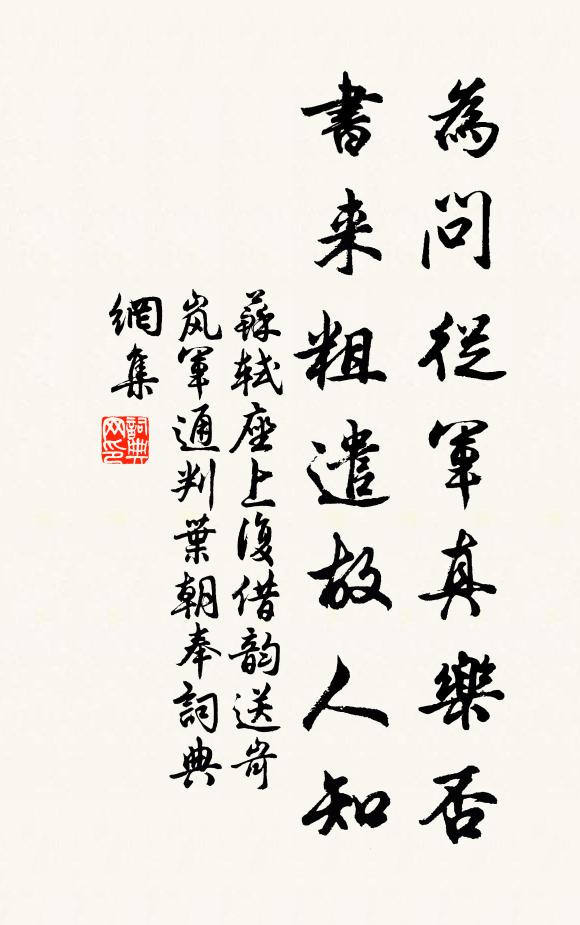 為問從軍真樂否
書来粗遣故人知
蘇軾座上復借韵送岢
岚軍通判葉朝奉詞典
網集
詞典
网印